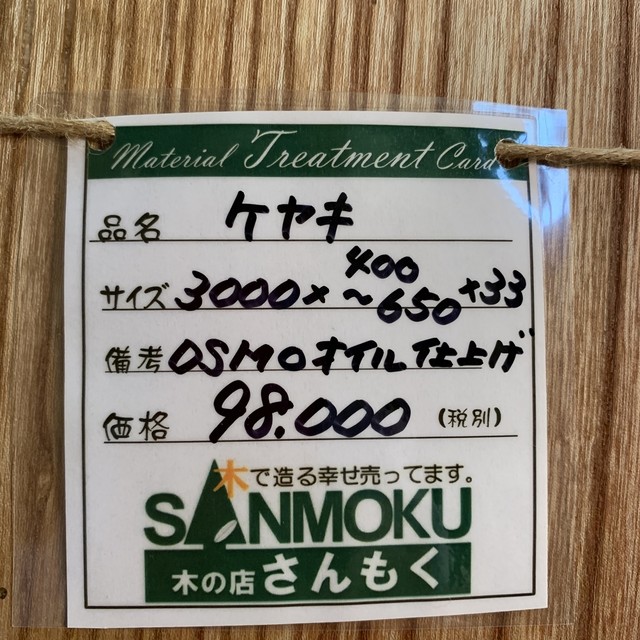 Material Treatment Card
品名 ケヤキ
サイズ 3000× 400～650 +33
備考 OSMOオイル仕上げ
価格 98.000 (税別)
木で造る幸せ売ってます。
SANMOKU
木の店 さんもく